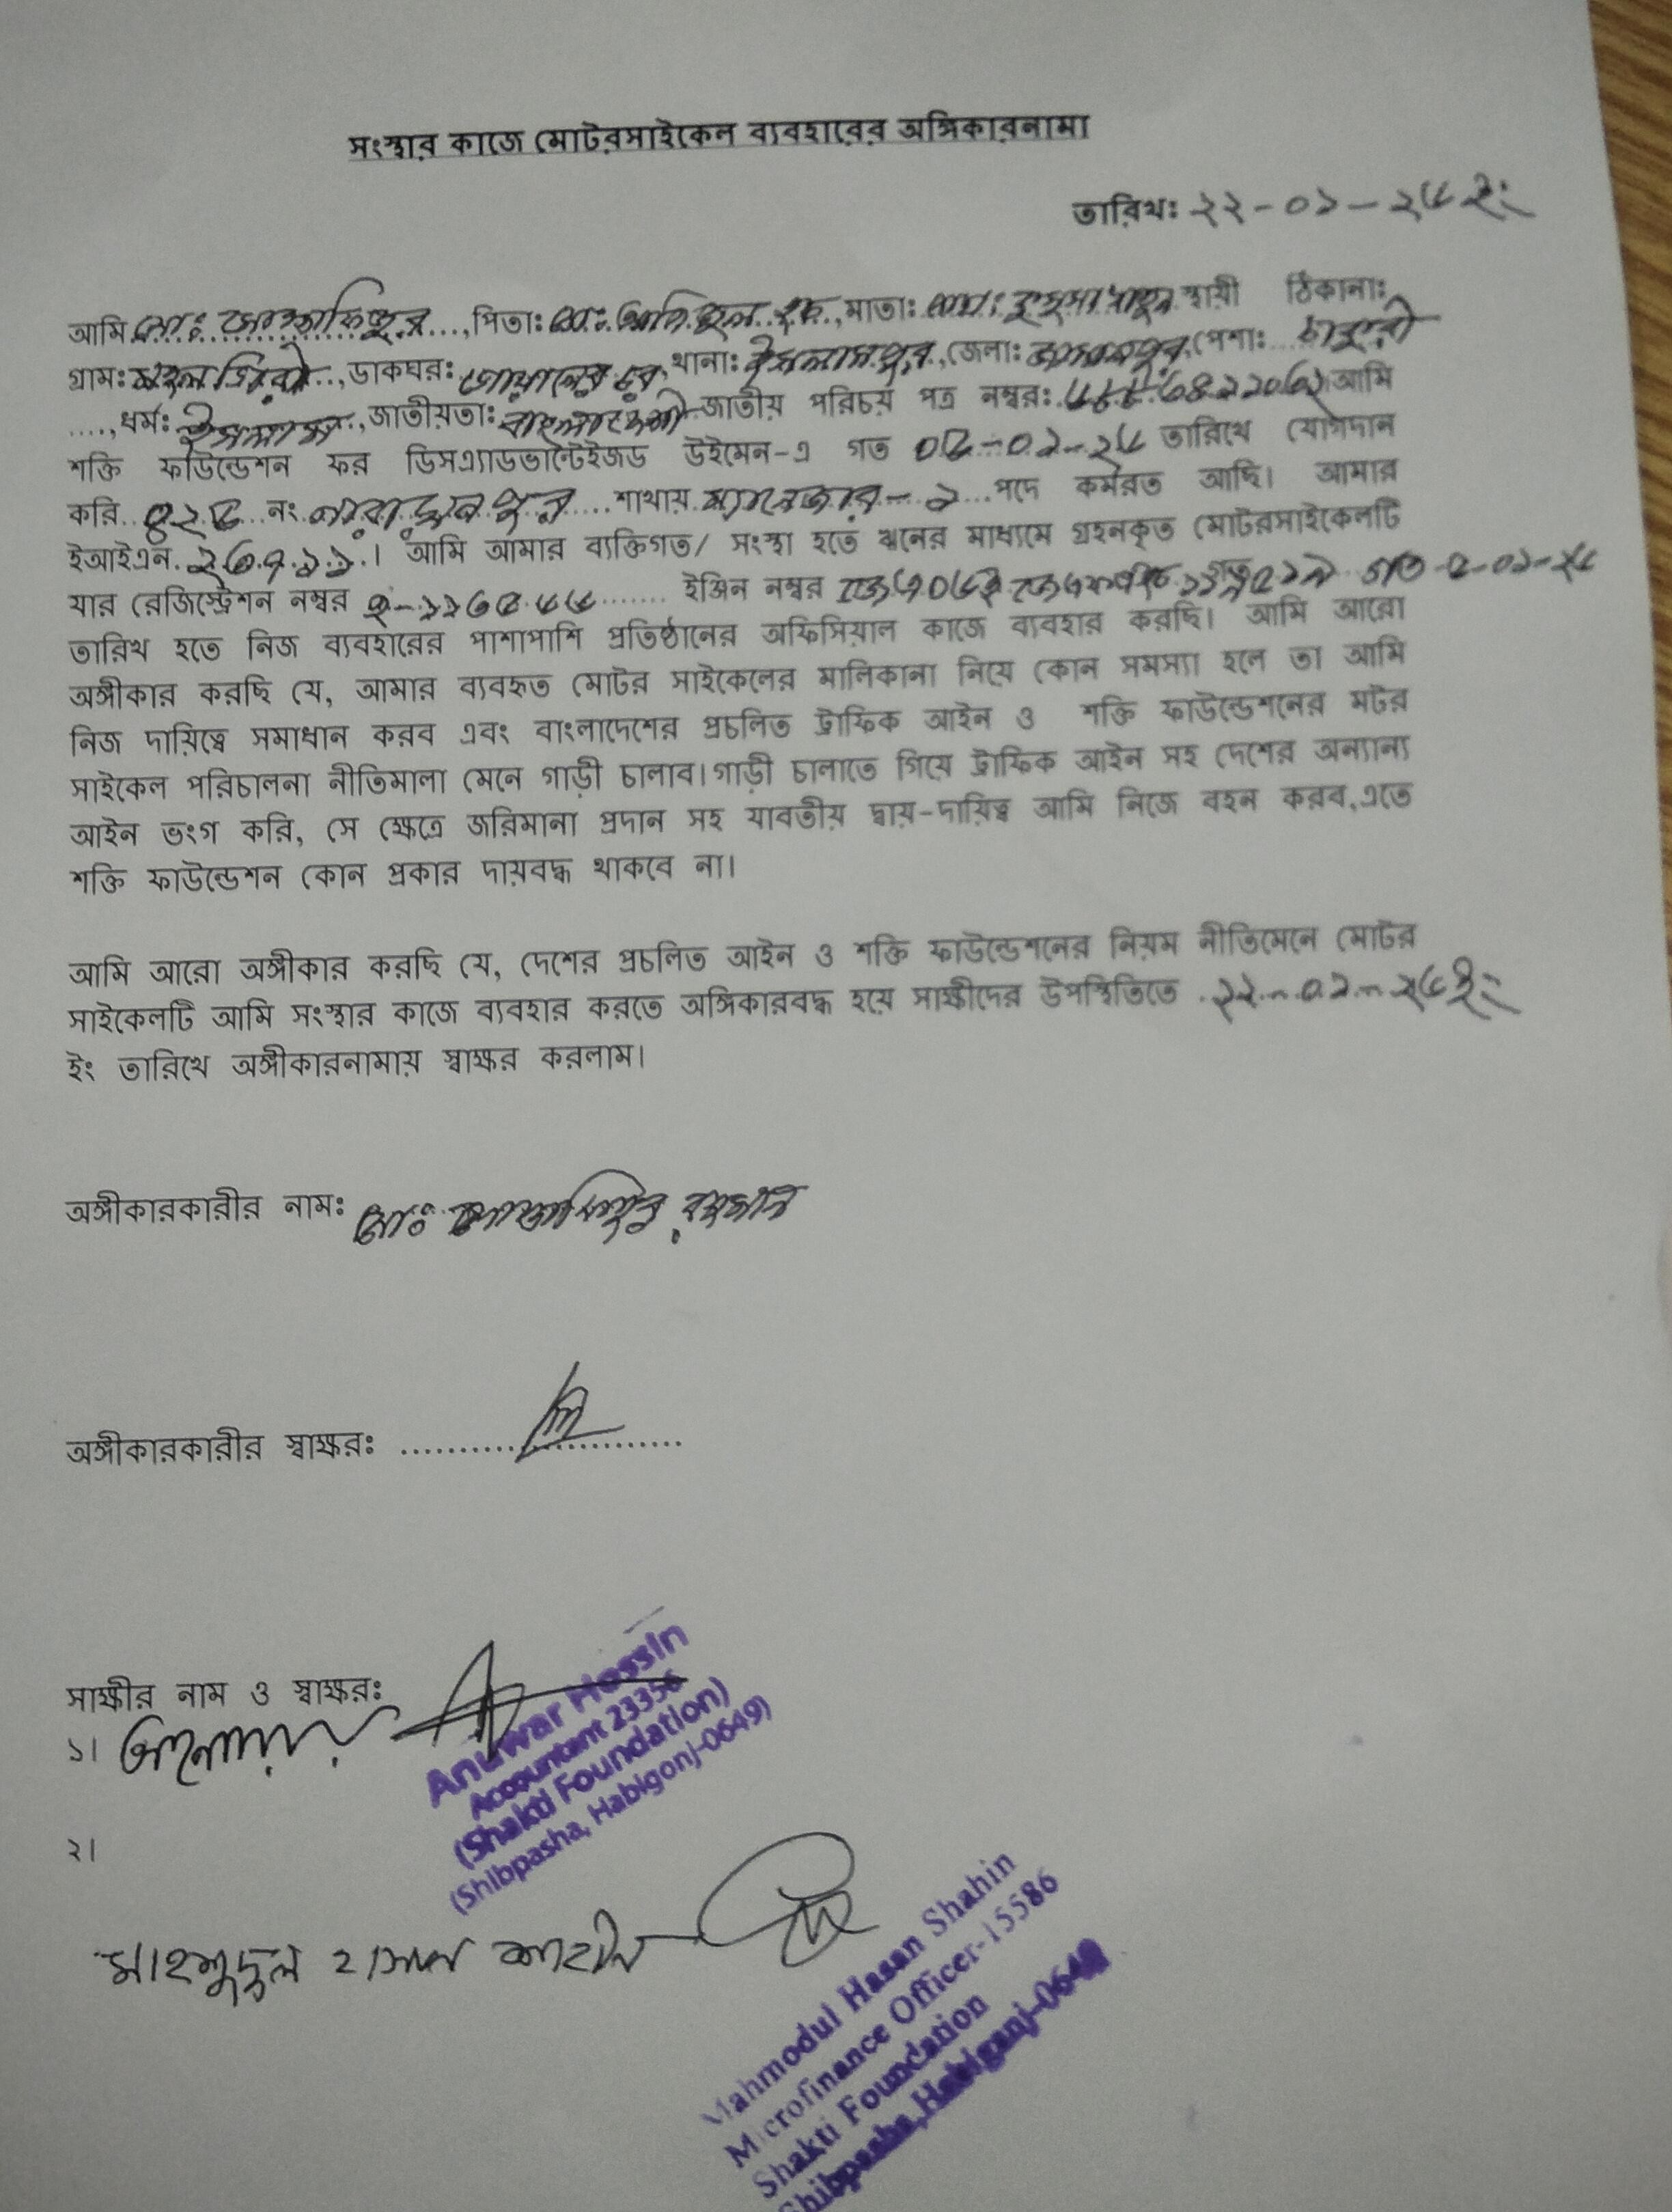 সংস্থার কাজে মোটরসাইকেল ব্যবহারের অঙ্গিকারনামা
তারিখঃ ২২-০১-২৬ ইং
আমি মোঃ মোস্তাফিজুর, পিতাঃ মোঃ হক, মাতাঃ মোছাঃ স্থায়ী ঠিকানাঃ
গ্রামঃ ডাকঘরঃ গোয়ালের চর, থানাঃ ইসলামপুর, জেলাঃ জামালপুর, পেশাঃ চাকুরী
...., ধর্মঃ ইসলাম, জাতীয়তাঃ বাংলাদেশী জাতীয় পরিচয় পত্র নম্বরঃ আমি
শক্তি ফাউন্ডেশন ফর ডিসএ্যাডভান্টেইজড উইমেন-এ গত তারিখে যোগদান
করি নং শাখায় ম্যানেজার-১ পদে কর্মরত আছি। আমার
ইআইএন ২৩৭১১। আমি আমার ব্যক্তিগত/ সংস্থা হতে ঋনের মাধ্যমে গ্রহনকৃত মোটরসাইকেলটি
যার রেজিস্ট্রেশন নম্বর ইঞ্জিন নম্বর গত
তারিখ হতে নিজ ব্যবহারের পাশাপাশি প্রতিষ্ঠানের অফিসিয়াল কাজে ব্যবহার করছি। আমি আরো
অঙ্গীকার করছি যে, আমার ব্যবহৃত মোটর সাইকেলের মালিকানা নিয়ে কোন সমস্যা হলে তা আমি
নিজ দায়িত্বে সমাধান করব এবং বাংলাদেশের প্রচলিত ট্রাফিক আইন ও শক্তি ফাউন্ডেশনের মটর
সাইকেল পরিচালনা নীতিমালা মেনে গাড়ী চালাব। গাড়ী চালাতে গিয়ে ট্রাফিক আইন সহ দেশের অন্যান্য
আইন ভংগ করি, সে ক্ষেত্রে জরিমানা প্রদান সহ যাবতীয় দ্বায়-দায়িত্ব আমি নিজে বহন করব,এতে
শক্তি ফাউন্ডেশন কোন প্রকার দায়বদ্ধ থাকবে না।
আমি আরো অঙ্গীকার করছি যে, দেশের প্রচলিত আইন ও শক্তি ফাউন্ডেশনের নিয়ম নীতিমেনে মোটর
সাইকেলটি আমি সংস্থার কাজে ব্যবহার করতে অঙ্গিকারবদ্ধ হয়ে সাক্ষীদের উপস্থিতিতে ২২-০১-২৬ ইং
ইং তারিখে অঙ্গীকারনামায় স্বাক্ষর করলাম।
অঙ্গীকারকারীর নামঃ মোঃ মোস্তাফিজুর রহমান
অঙ্গীকারকারীর স্বাক্ষরঃ ..........................
সাক্ষীর নাম ও স্বাক্ষরঃ
১। আনোয়ার
Anuwar Hossin
Accountant 23356
(Shakti Foundation)
(Shibpasha, Habigonj-0649)
২।
মাহমুদুল হাসান শাহীন
Mahmodul Hasan Shahin
Microfinance Officer-15586
Shakti Foundation
Shibpasha,Habiganj-0649